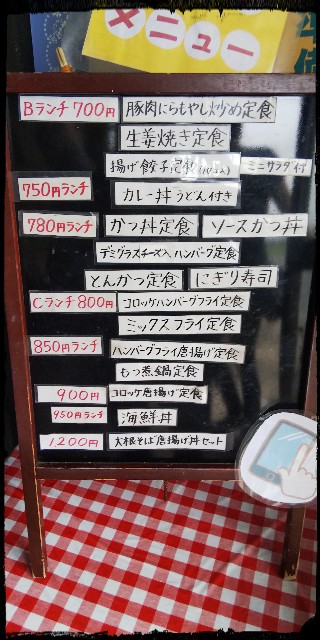 メニュー
Bランチ 700円 豚肉にらもやし炒め定食
生姜焼き定食
揚げ餃子定食 ミニサラダ付
750円ランチ カレー丼うどん付き
780円ランチ かつ丼定食 ソースかつ丼
デミグラスチーズ入ハンバーグ定食
とんかつ定食 にぎり寿司
Cランチ800円 コロッケハンバーグフライ定食
ミックスフライ定食
850円ランチ ハンバーグフライ唐揚げ定食
もつ煮鍋定食
900円 コロッケ唐揚げ定食
950円ランチ 海鮮丼
1200円 大根そば唐揚げ丼セット